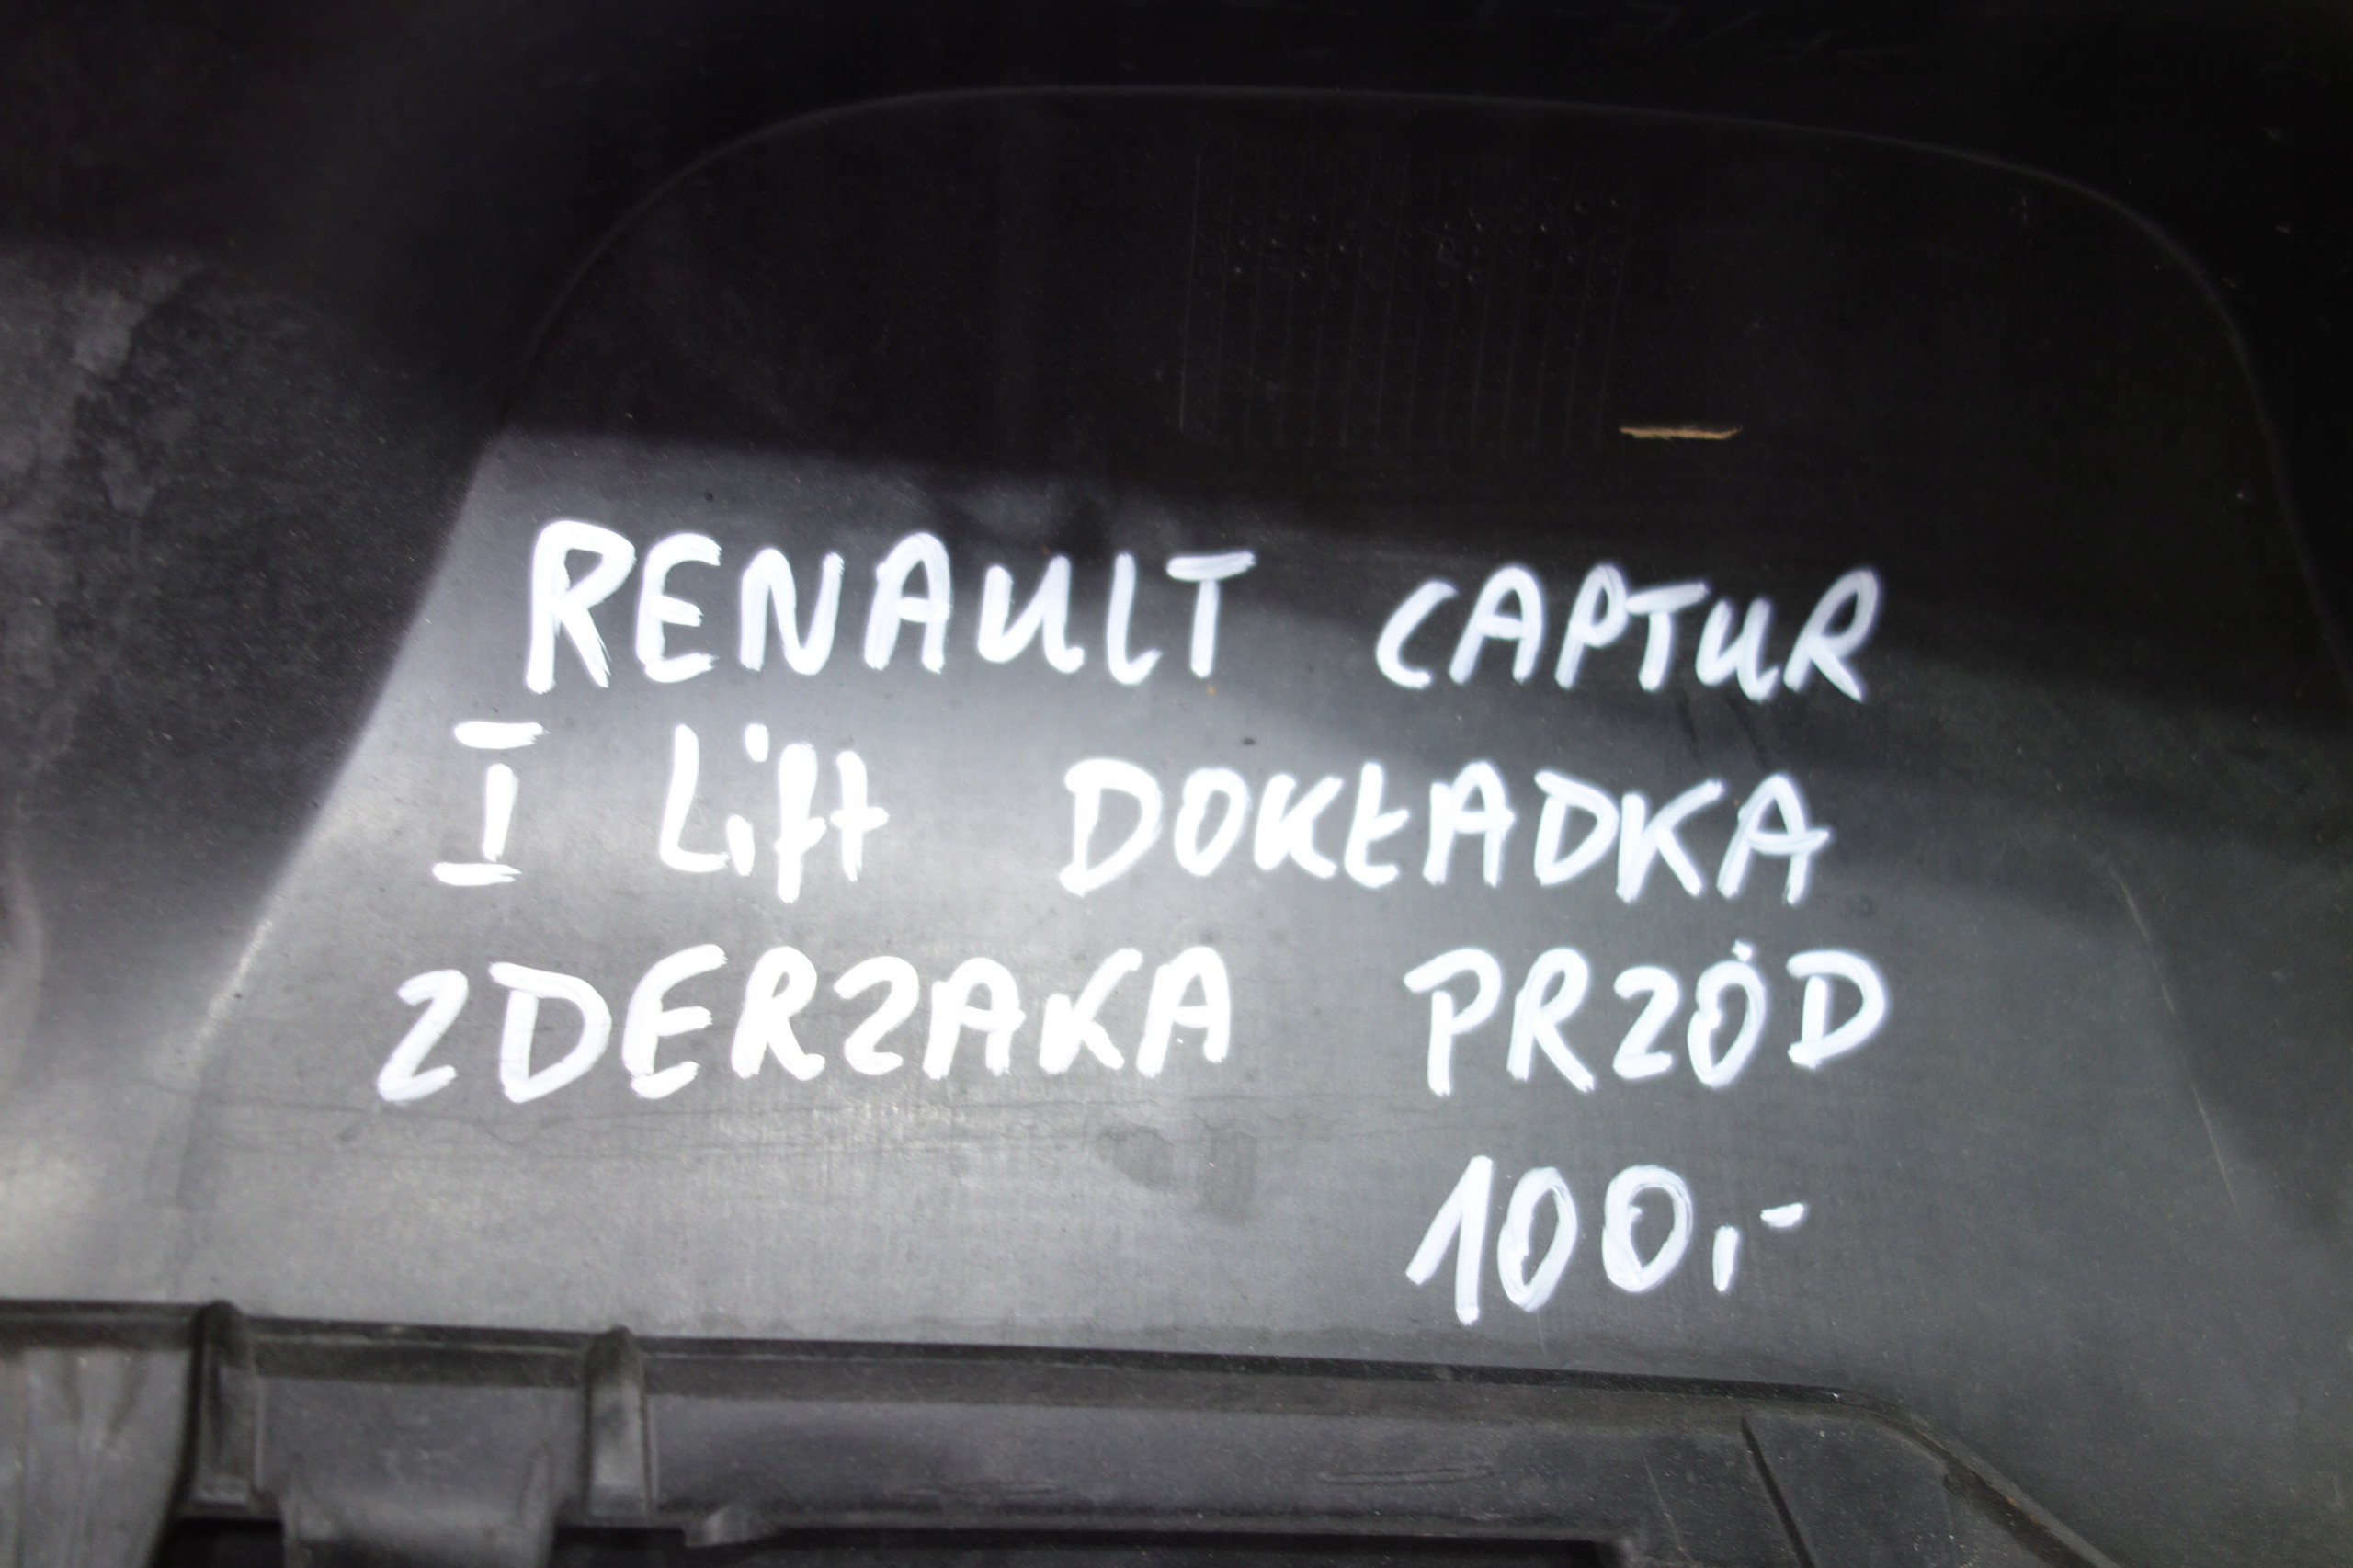 RENAULT CAPTUR
I Lift DOKŁADKA
ZDERZAKA PRZÓD
100,-